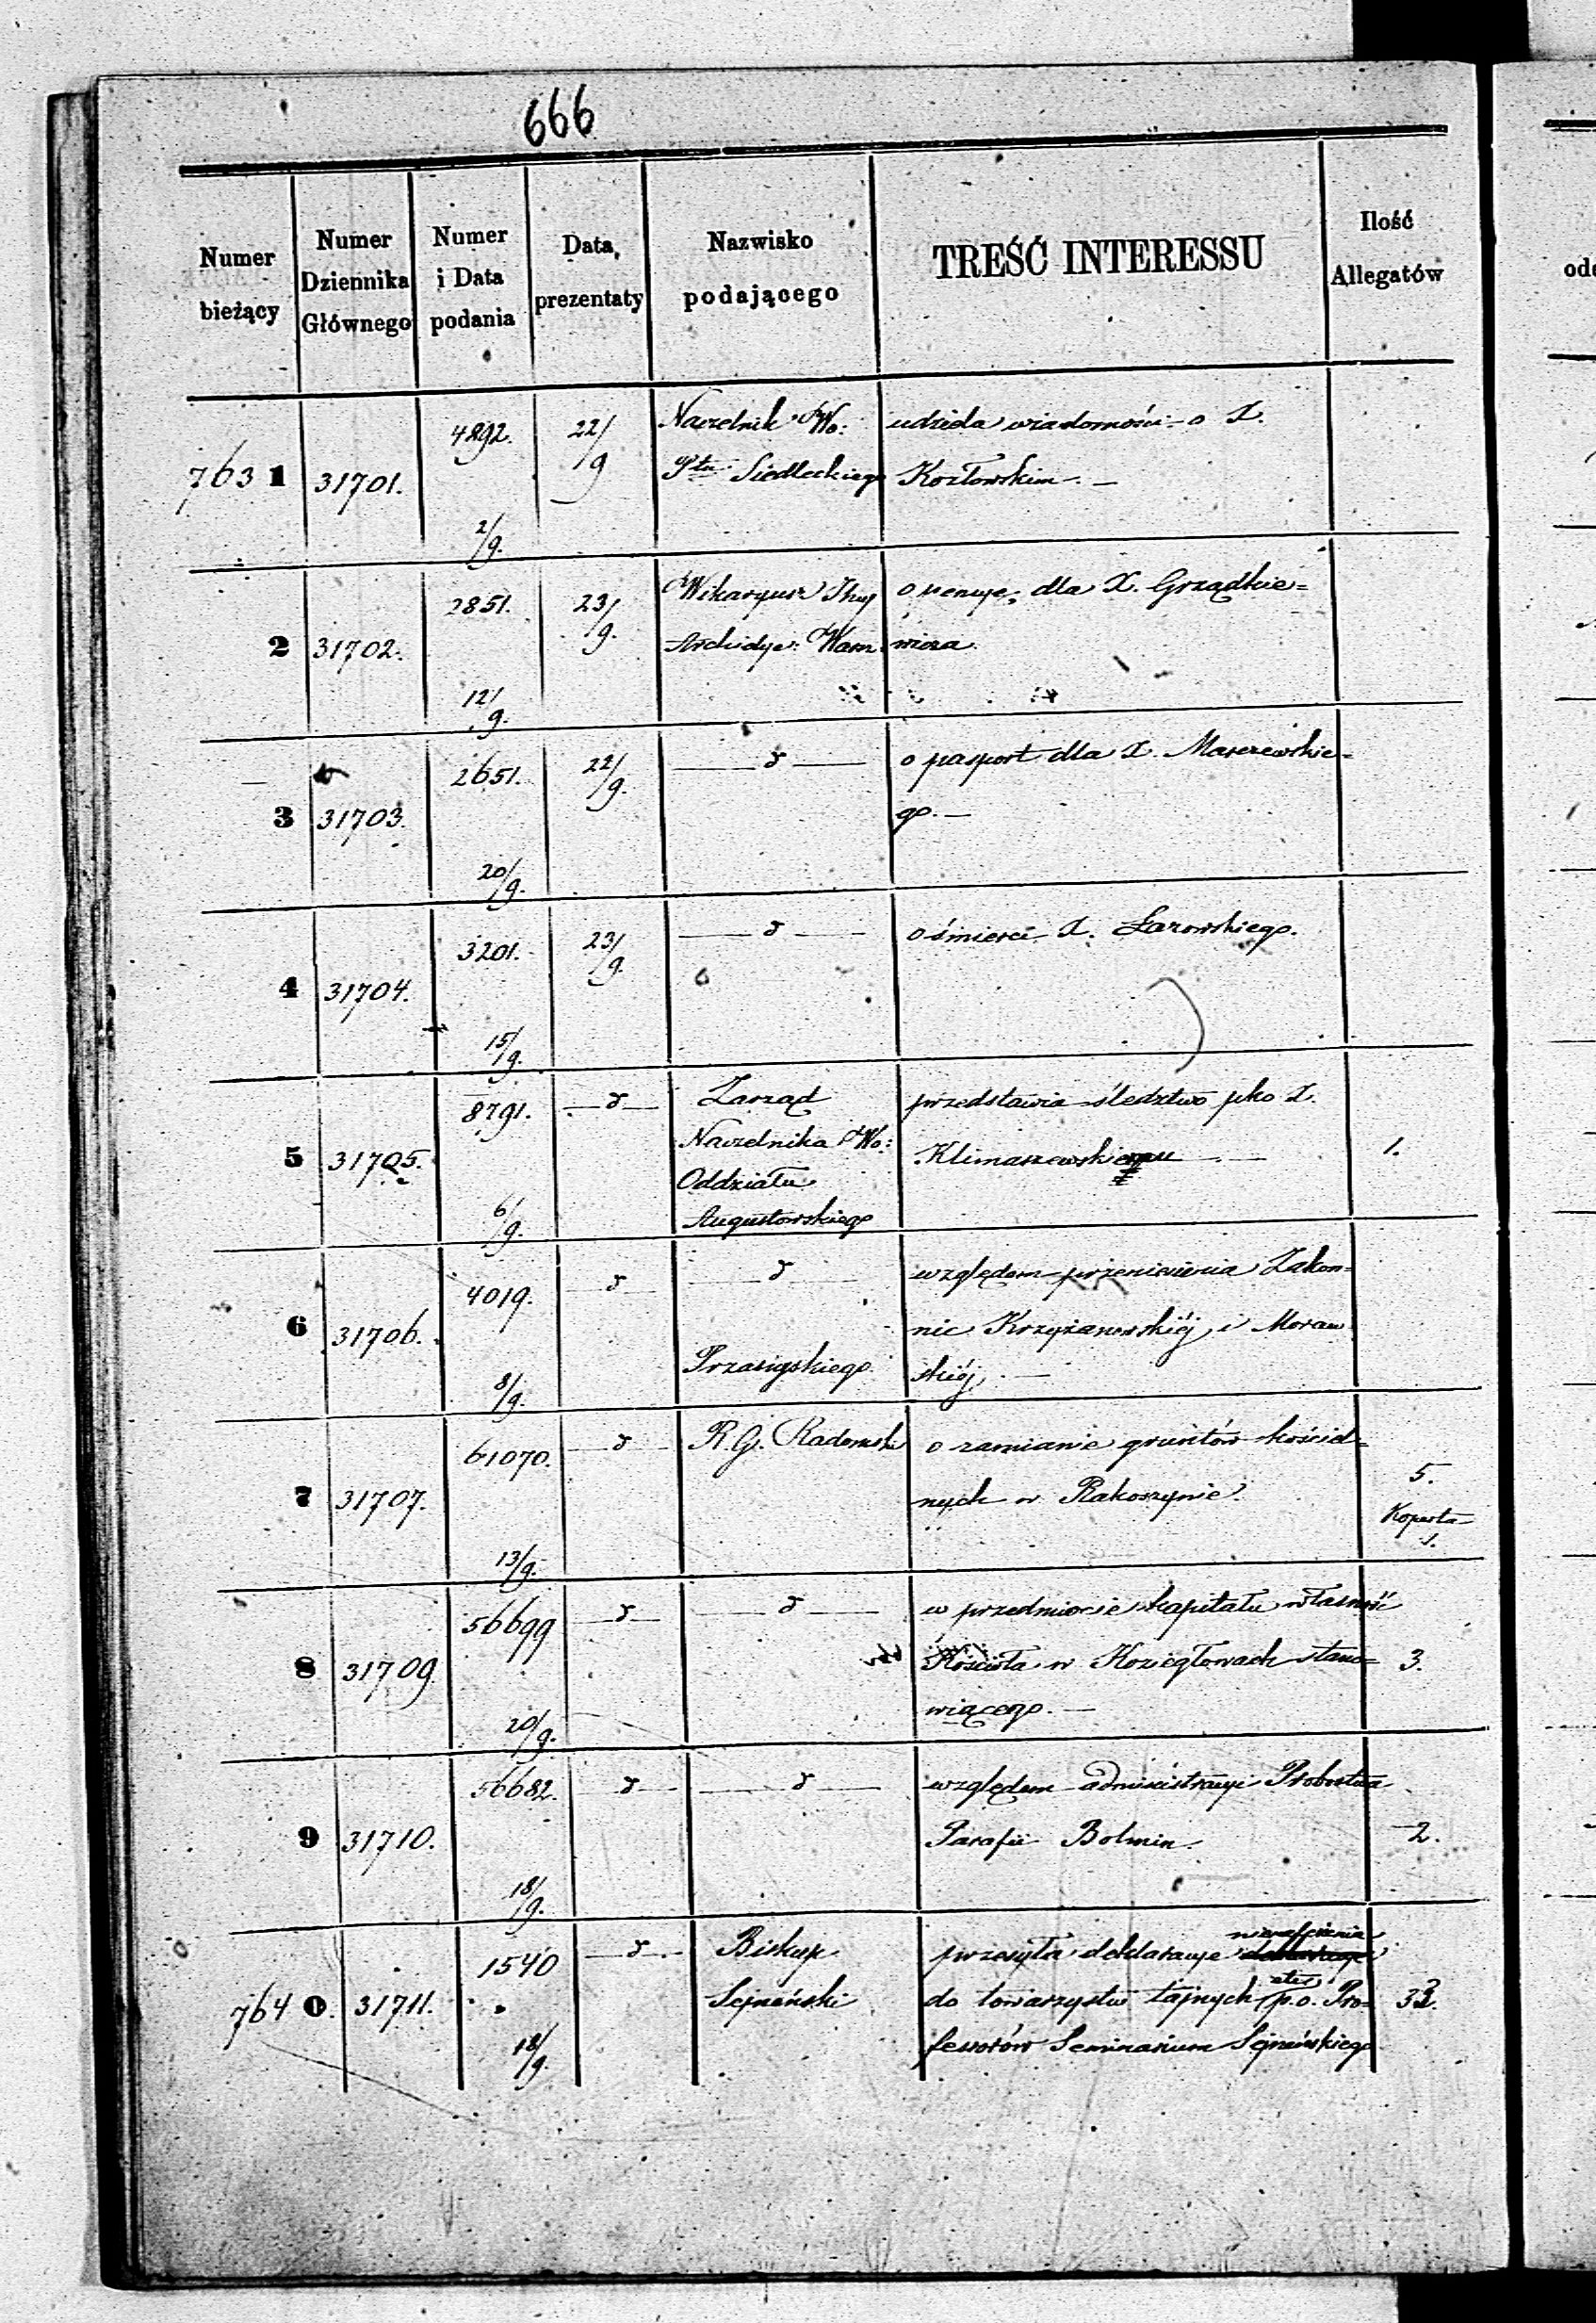 666
Numer bieżący
Numer Dziennika Głównego
Numer i Data podania
Data prezentaty
Nazwisko podającego
TREŚĆ INTERESSU
Ilość Allegatów
7631 31701. 4892. 2/9. 22/9 Naczelnik Wo: udziela wiadomości o X.
Ptu Siedleckiego Kozłowskim. —
2 31702. 2851. 12/9. 23/9. Wikaryusz o pensye, dla X. Grządkie=
Archidye: wicza.
3 31703. 2651. 20/9. 22/9. — d — o pasport dla X. Maszewskie=
go. —
4 31704. 3201. 15/9. 23/9. — d — o śmierci X. Łazowskiego.
5 31705. 8791. 6/9. — d — Zarząd przedstawia śledztwo pko X.
Naczelnika Wo: Klimaszewskiemu — 1.
Oddziału
Augustowskiego
6 31706. 4019. 8/9. — d — — d — względem przeniesienia Zakon=
nic Krzyżanowskiéj i Moraw
Przasnyskiego skiéj. —
7 31707. 61070. 13/9. — d — R. G. Radomski o zamianie gruntów kościel=
nych w Rakoszynie. 5.
Koperta
1.
8 31709. 56699 20/9. — d — — d — w przedmiocie kapitału własność
Kościoła w Koziegłowach stano= 3.
wiącego. —
9 31710. 56682. 18/9. — d — — d — względem administracyi Probostwa
Parafii Bolmin. 2.
7640. 31711. 1540 18/9. — d — Biskup przesyła deklaracye nienależenia
Sejneński do towarzystw tajnych p.o. Pro=
fessorów Seminarium Sejneńskiego